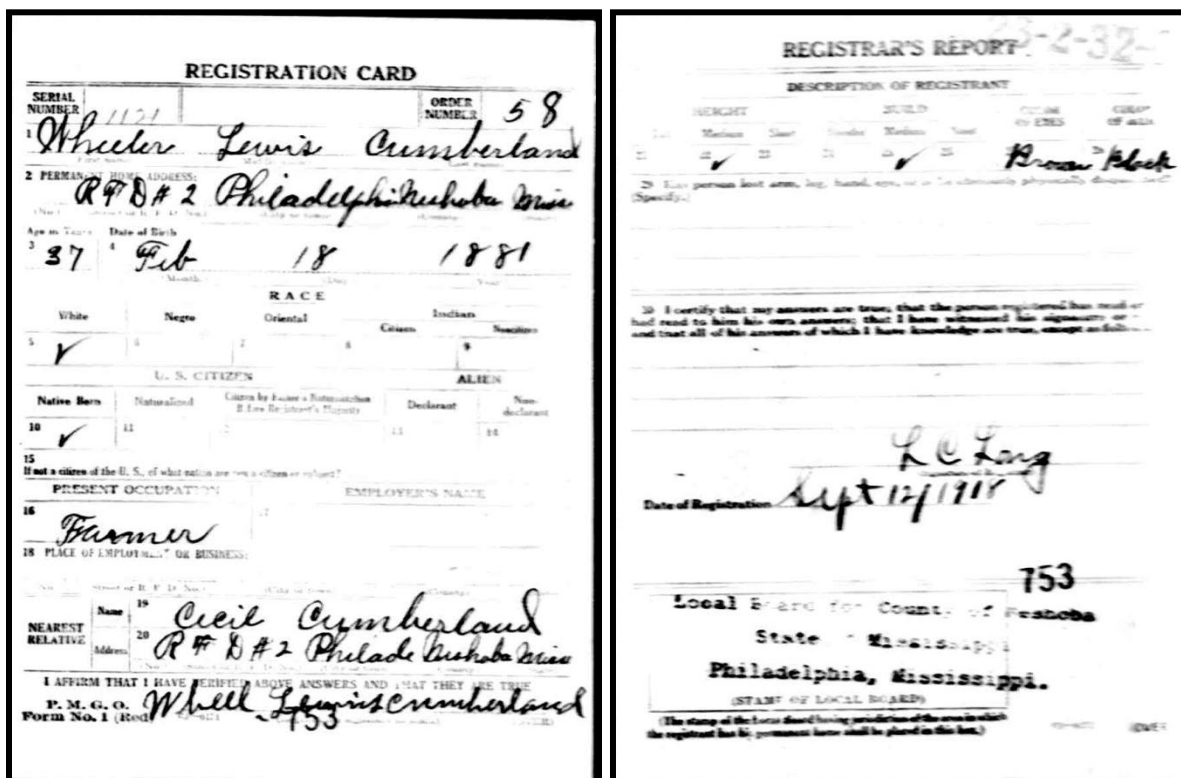 REGISTRATION CARD
SERIAL NUMBER 1121 ORDER NUMBER 58
1 Wheeler Lewis Cumberland
2 PERMANENT HOME ADDRESS:
R F D # 2 Philadelphi Neshoba Miss
Age in Years Date of Birth
3 37 4 Feb 18 1881
Month Day Year
RACE
White Negro Oriental Indian
Citizen Noncitizen
5 ✓ 6 7 8 9
U. S. CITIZEN ALIEN
Native Born Naturalized Citizen by Father's Naturalization Before Registrant's Majority Declarant Non-declarant
10 ✓ 11 13 14
15
If not a citizen of the U. S., of what nation are you a citizen or subject?
PRESENT OCCUPATION EMPLOYER'S NAME
16 Farmer 17
18 PLACE OF EMPLOYMENT OR BUSINESS:
No. Street or R. F. D. No. (City or town) County
NEAREST RELATIVE
Name 19 Cecil Cumberland
Address 20 R F D # 2 Philade Neshoba Miss
I AFFIRM THAT I HAVE VERIFIED ABOVE ANSWERS AND THAT THEY ARE TRUE
P. M. G. O.
Form No. 1 (Red) Whell Lewis Cumberland
753
23-2-32
REGISTRAR'S REPORT
DESCRIPTION OF REGISTRANT
HEIGHT BUILD COLOR OF EYES COLOR OF HAIR
Tall Medium Short Slender Medium Stout
21 22 ✓ 23 24 25 ✓ 26 Brown 28 Black
29 Has person lost arm, leg, hand, eye, or is he obviously physically disqualified?
(Specify.)
30 I certify that my answers are true; that the person registered has read or
had read to him his own answers; that I have witnessed his signature or
and that all of his answers of which I have knowledge are true, except as follows:
L C Long
Date of Registration Sept 12/1918
753
Local Board for County of Neshoba
State of Mississippi
Philadelphia, Mississippi.
(STAMP OF LOCAL BOARD)
(The stamp of the Local Board having jurisdiction of the area in which
the registrant has his permanent home shall be placed in this box.)
(OVER)